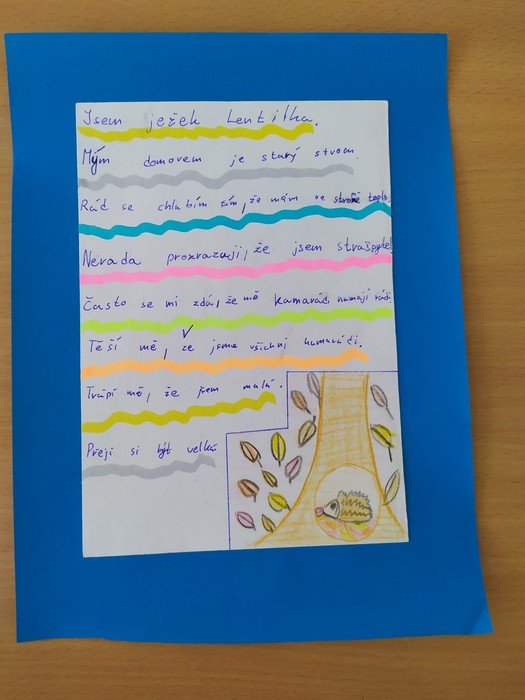 Jsem ježek Lentilka.
Mým domovem je starý strom.
Rád se chlubím tím, že mám ve teplo
Nerada prozrazuji, že jsem strašpytel
Často se mi zdá, že mě kamarádi nemají rádi
Těší mě, že jsme všichni kamarádi.
Trápí mě, že jsem malá.
Přeji si být velká